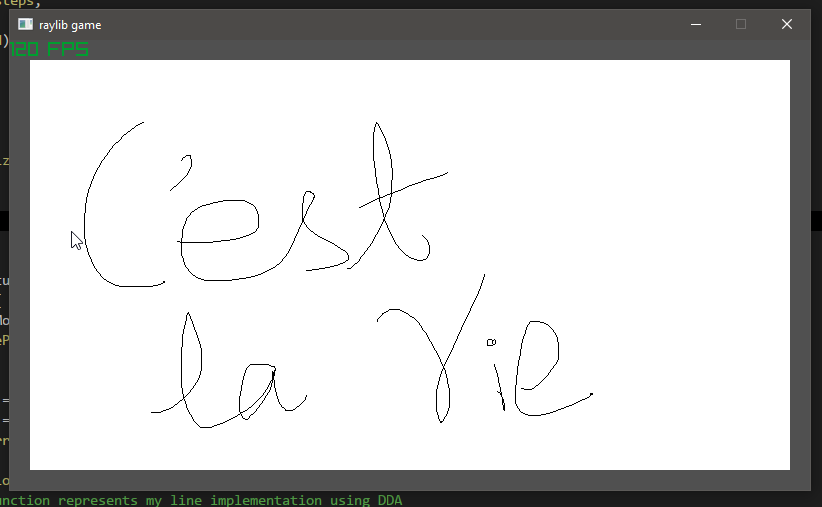 steps,
raylib game
120 FPS
C'est
la vie
unction represents my line implementation using DDA